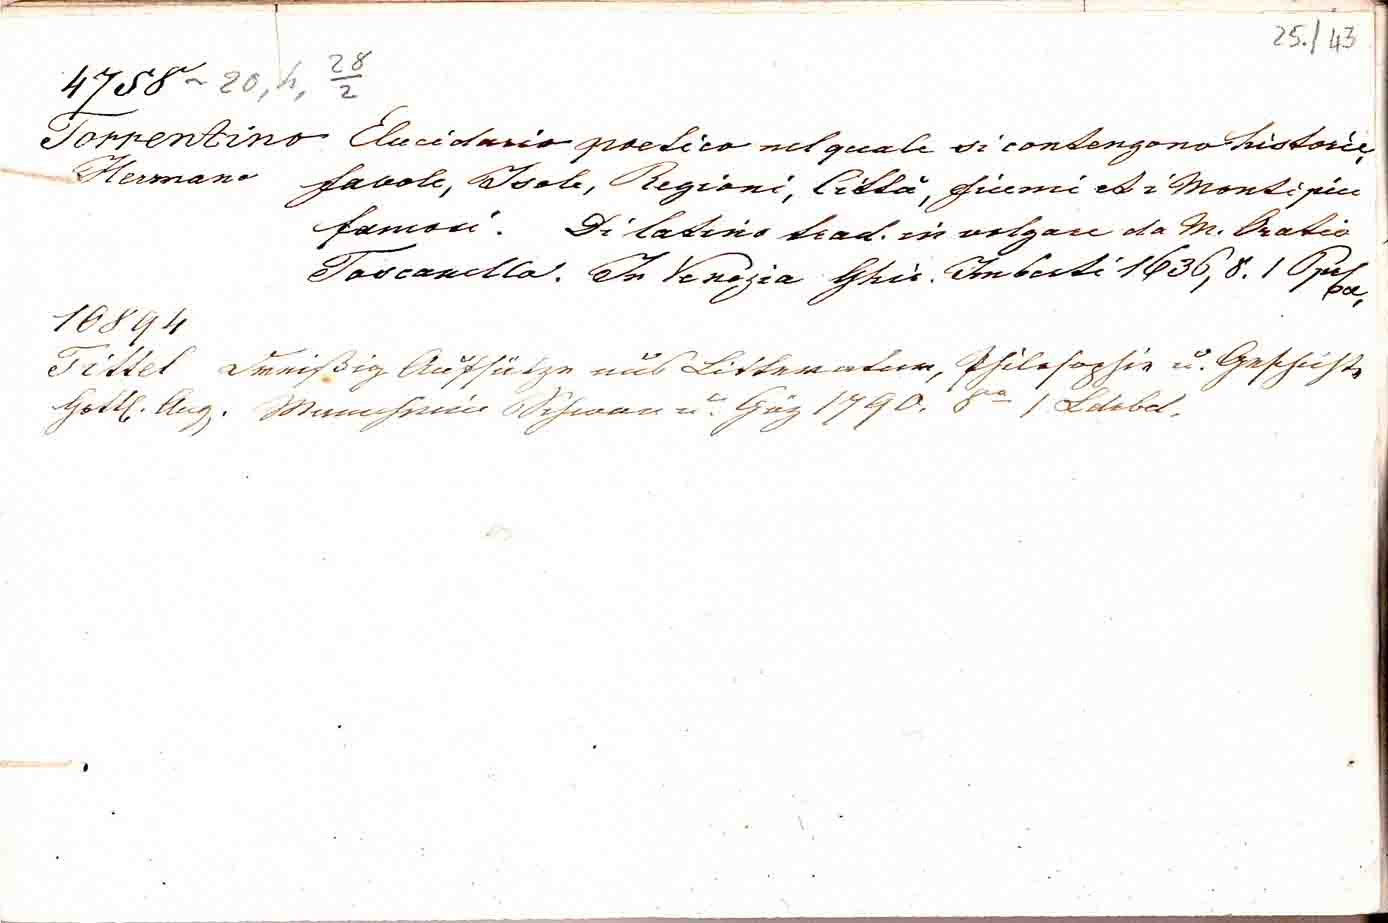 25./43
4758 ~ 20, h, 28/2
Torrentino Elucidario poetico nel quale si contengono historie,
Hermano favole, Isole, Regioni, Città, fiumi et i Monti piu
famosi. Di latino trad. in volgare da M. Oratio
Toscanella. In Venezia Ghir. Imberti 1636, 8. 1
10894
Tittel Dreißig Aufsätze aus Litteratur, Philosophie u. Geschichte
Gottl. Aug. Mannheim Schwan u. Göz 1790. 8vo 1 Ldrbd.